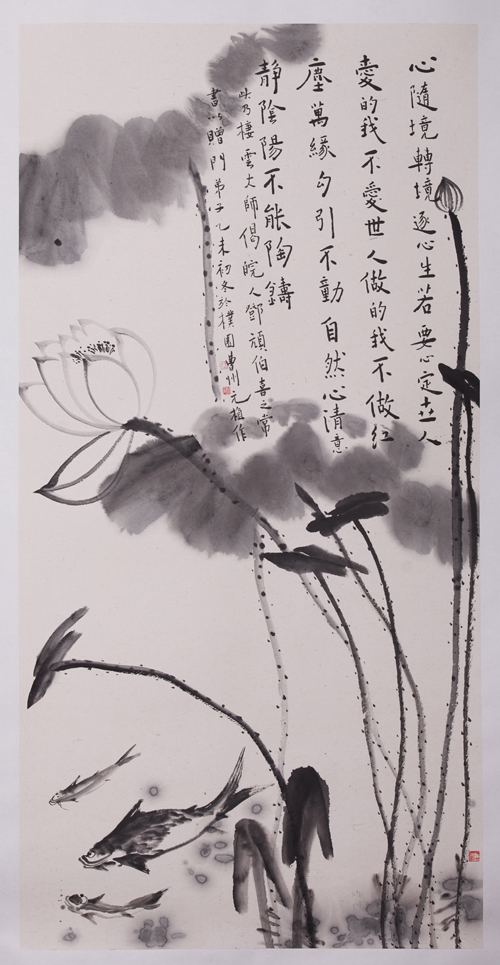 心隨境轉境逐心生若要心定世人
愛的我不愛世人做的我不做紅
塵萬緣勾引不動自然心清意
靜陰陽不能陶鑄
此乃棲雲大師偈皖人鄧頑伯喜之常
書以贈門弟子乙未初冬於樸園曹州元植作